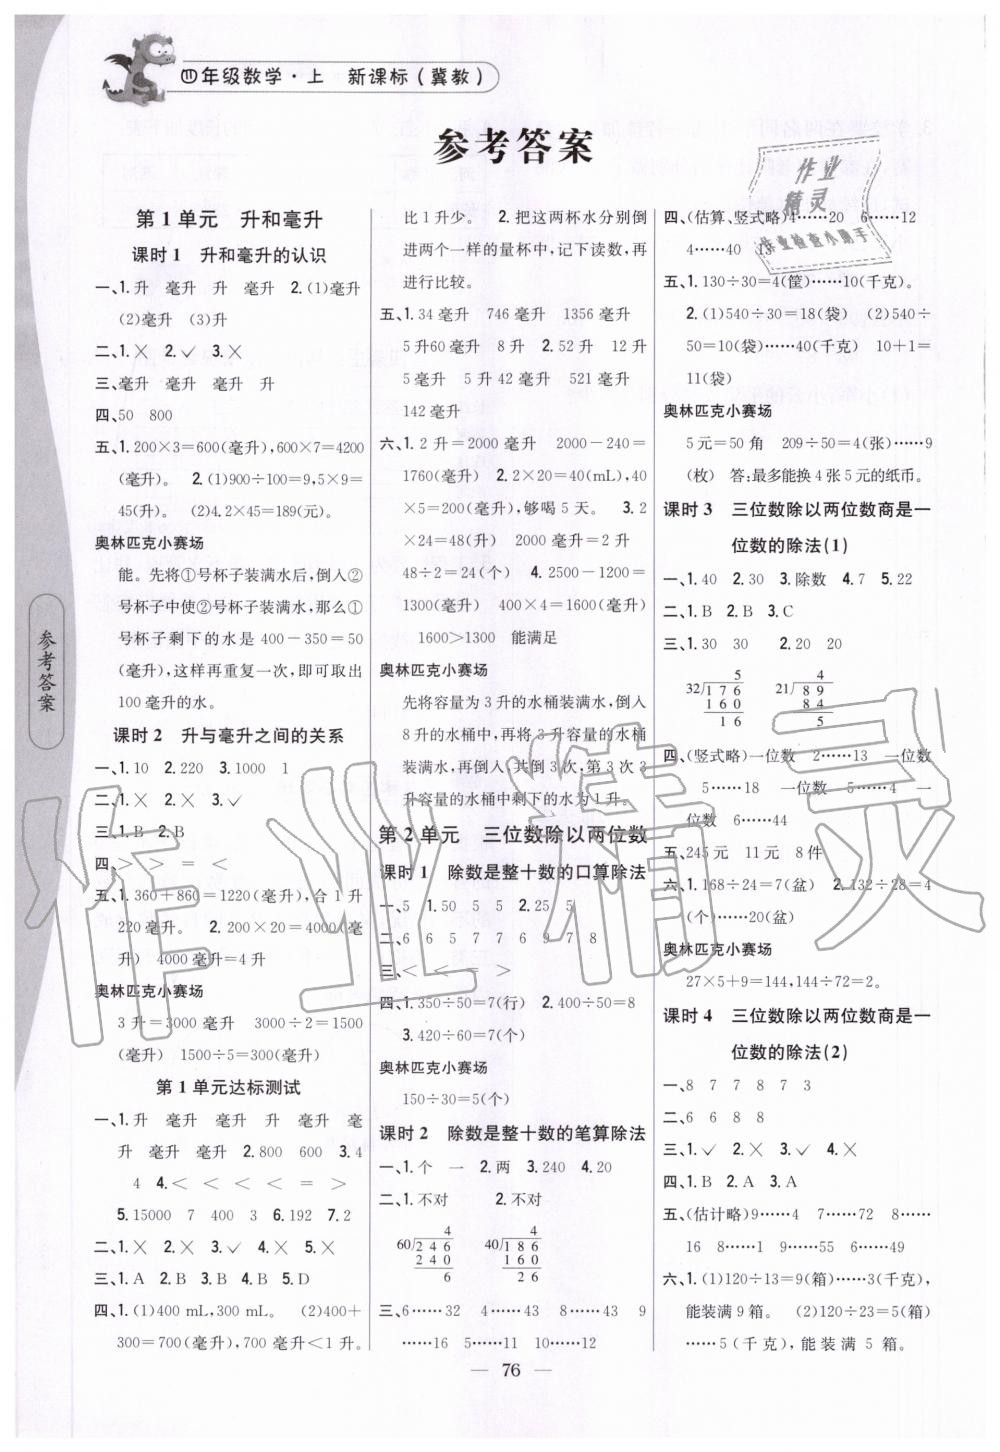 四年级数学·上 新课标(冀教)
参考答案
作业
精灵
作业检查小助手
参考答案
第1单元 升和毫升
课时1 升和毫升的认识
一、1.升 毫升 升 毫升 2.(1)毫升
(2)毫升 (3)升
二、1.✕ 2.✓ 3.✕
三、毫升 毫升 毫升 升
四、50 800
五、1.200×3=600(毫升),600×7=4200
(毫升)。 2.(1)900÷100=9,5×9=
45(升)。 (2)4.2×45=189(元)。
奥林匹克小赛场
能。先将①号杯子装满水后,倒入②
号杯子中使②号杯子装满水,那么①
号杯子剩下的水是400-350=50
(毫升),这样再重复一次,即可取出
100毫升的水。
课时2 升与毫升之间的关系
一、1.10 2.220 3.1000 1
二、1.✕ 2.✕ 3.✓
三、1.B 2.B
四、> > = < <
五、1.360+860=1220(毫升),合1升
220毫升。 2.200×20=4000(毫
升) 4000毫升=4升
奥林匹克小赛场
3升=3000毫升 3000÷2=1500
(毫升) 1500÷5=300(毫升)
第1单元达标测试
一、1.升 毫升 毫升 升 毫升 毫
升 毫升 毫升 2.800 600 3.4
4 4.< < < < = >
5.15000 7 400 3 6.192 7.2
二、1.✕ 2.✕ 3.✓ 4.✕ 5.✕
三、1.A 2.B 3.B 4.B 5.D
四、1.(1)400 mL,300 mL。 (2)400+
300=700(毫升),700毫升<1升。
比1升少。 2.把这两杯水分别倒
进两个一样的量杯中,记下读数,再
进行比较。
五、1.34毫升 746毫升 1356毫升
5升60毫升 8升 2.52升 12升
5毫升 5升42毫升 521毫升
142毫升
六、1.2升=2000毫升 2000-240=
1760(毫升) 2.2×20=40(mL),40
×5=200(毫升),够喝5天。 3.2
×24=48(升) 2000毫升=2升
48÷2=24(个) 4.2500-1200=
1300(毫升) 400×4=1600(毫升)
1600>1300 能满足
奥林匹克小赛场
先将容量为3升的水桶装满水,倒入
8升的水桶中,再将3升容量的水桶
装满水,再倒入,共倒3次,第3次3
升容量的水桶中剩下的水为1升。
第2单元 三位数除以两位数
课时1 除数是整十数的口算除法
一、5 1.50 5 5 2.25 5
二、6 6 5 7 7 6 9 7 8
三、< < = > < <
四、1.350÷50=7(行) 2.400÷50=8
3.420÷60=7(个)
奥林匹克小赛场
150÷30=5(个)
课时2 除数是整十数的笔算除法
一、1.个 一 2.两 3.240 4.20
二、1.不对 2.不对
4 4
60)246 40)186
240 160
6 26
三、6……32 4……43 8……43 9
……16 5……11 10……12
四、(估算、竖式略)4……20 6……12
4……40
五、1.130÷30=4(筐)……10(千克)。
2.(1)540÷30=18(袋) (2)540÷
50=10(袋)……40(千克) 10+1=
11(袋)
奥林匹克小赛场
5元=50角 209÷50=4(张)……9
(枚) 答:最多能换4张5元的纸币。
课时3 三位数除以两位数商是一
位数的除法(1)
一、1.40 2.30 3.除数 4.7 5.22
二、1.B 2.B 3.C
三、1.30 30 2.20 20
5 4
32)176 21)89
160 84
16 5
四、(竖式略)一位数 2……13 一位数
5……18 一位数 5……4 一
位数 6……44
五、245元 11元 8件
六、1.168÷24=7(盆) 2.132÷28=4
(个)……20(盆)
奥林匹克小赛场
27×5+9=144,144÷72=2。
课时4 三位数除以两位数商是一
位数的除法(2)
一、8 7 7 8 7 3
二、6 6 8 8
三、1.✓ 2.✕ 3.✓ 4.✕
四、1.B 2.A 3.A
五、(估计略)9……4 7……72 8……
16 8……1 9……55 6……49
六、1.(1)120÷13=9(箱)……3(千克),
能装满9箱。 (2)120÷23=5(箱)
……5(千克),能装满5箱。
— 76 —
作业精灵